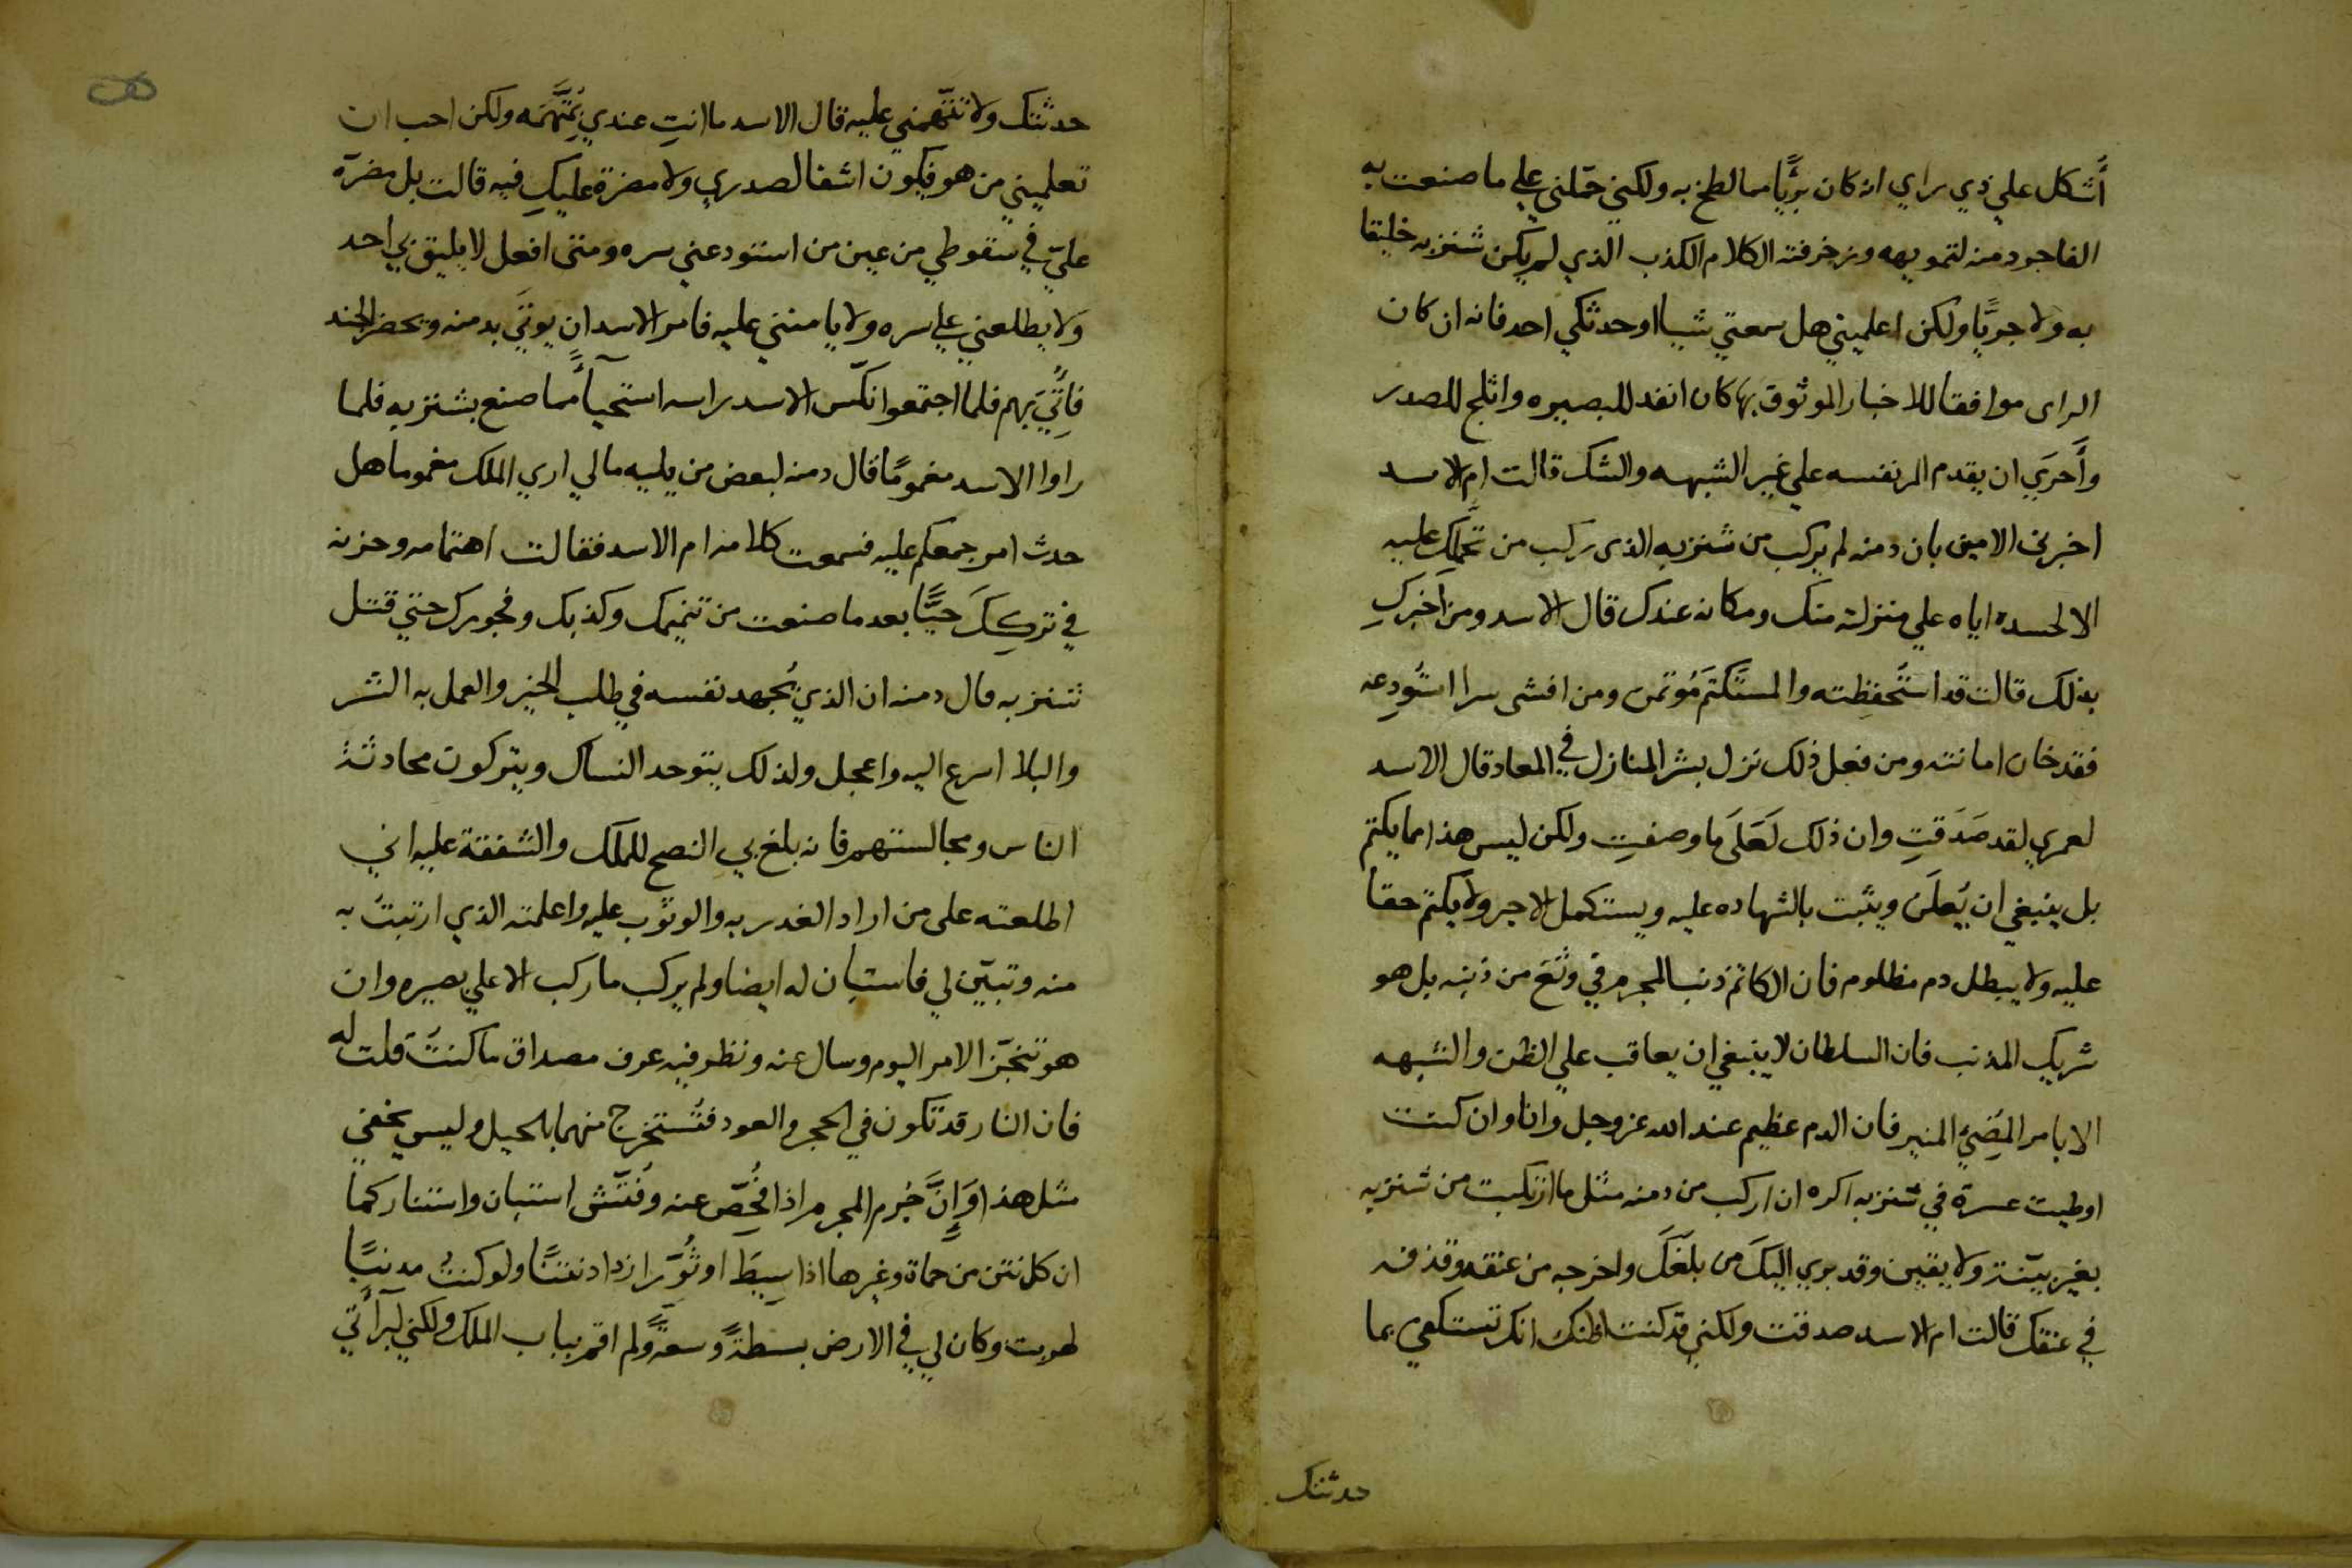 أَشكل علي ذي راي انه كان بريًّا مما لطخ به ولكني حمّلني علي ما صنعت به
الفاجر دمنه لتمويهه وزخرفته الكلام الكذب الذي لم يكن شنزبه خليقا
به ولا جريًّا ولكن اعلميني هل سمعتي شيا اوحدثكي احد فانه ان كان
الراى موافقا للاخبار الموثوق بها كان انفد للبصيره واثلج للصدر
وأَحرَي ان يقدم المر نفسه علي غير الشبهه والشك قالت ام الاسد
اخبرني الامين بان دمنه لم يركب من شنزبه الذى ركب من تحمّلك عليه
الا لحسده اياه علي منزلته منك ومكانه عندك قال الاسد ومن اخبركِ
بذلك قالت قد استُحفِظته والمستَكتَم مُوتمن ومن افشى سرا استُودِعه
فقد خان امانته ومن فعل ذلك نزل بشر المنازل في المعاد قال الاسد
لعمري لقد صَدَقتِ وان ذلك لَعَلَى ما وصفتِ ولكن ليس هذا مما يكتم
بل ينبغي ان يُعلَن ويثبت بالشهاده عليه ويستكمل الاجر ولا يكتم حقا
عليه ولا يبطل دم مظلوم فان الكاتم ذنب المجرم في وثَع من ذنبه بل هو
شريك المذنب فان السلطان لا ينبغي ان يعاقب علي الظن والشبهه
الا بامر المُضِيّ المنير فان الدم عظيم عند الله عز وجل وانا وان كنت
اوطيت عسرة في شنزبه اكره ان اركب من دمنه مثل ما ارتكبت من شنزبه
بغير بيّنة ولا يقين وقد بري اليكَ من بلغَكَ واخرجه من عنقه وقذفه
في عنقك قالت ام الاسد صدقت ولكني قد كنت اظنك انك تستكفي بما
حدثتك
حدثتك ولا تتّهمني عليه قال الاسد ما انتِ عندي بِمُتَّهَمَه ولكن احب ان
تعلميني من هو فيكون اشفا لصدري ولا مضرة عليكِ فيه قالت بل مضرّه
عليّ في سقوطي من عين من استودعني سره ومتى افعل لا يليق بي احد
ولا يطلعني علي سره ولا يا منني عليه فامر الاسد ان يوتَي بدمنه ويحضر الجند
فاُتِيَ بهم فلما اجتمعوا نكّس الاسد راسه استحيآءً مما صنع بشنزبه فلما
راوا الاسد مغمومًا قال دمنه لبعض من يليه مالي اري الملك مغموما هل
حدث امر جمعكم عليه فسمعت كلامه ام الاسد فقالت اهتمامه وحزنه
في تركِكَ حيًّا بعد ما صنعت من تنميمك وكذبك وفجورك حتي قتل
شنزبه قال دمنه ان الذي يُجهد نفسه في طلب الخير والعمل به الشر
والبلا اسرع اليه واعجل ولذلك يتوحد النساك ويتركون محادثة
الناس ومجالستهم فانه بلغ بي النصح للملك والشفقة عليه اني
اطلعته على من اراد الغدر به والوثوب عليه واعلمته الذي ارتبتُ به
منه وتبيّن لي فاستبان له ايضا ولم يركب ما ركب الا علي بصيره وان
هو تنجّز الامر اليوم وسال عنه ونظر فيه عرف مصداق ما كنتُ قلت له
فان النار قد تكون في الحجر والعود فتُستخرج منهما بالحيل وليس يخفي
مثل هذا وَإِنَّ جُرم المجرم اذا فُحِّصَ عنه وفُتّش استبان واستنار كما
ان كل نتن من حماة وغيرها اذا سِيطَ اوثُوّر ازداد نتنًا ولو كنتُ مدنبًا
لهربت وكان لي في الارض بسطةً وسعةً ولم اقم بباب الملك ولكني لبرآءتي